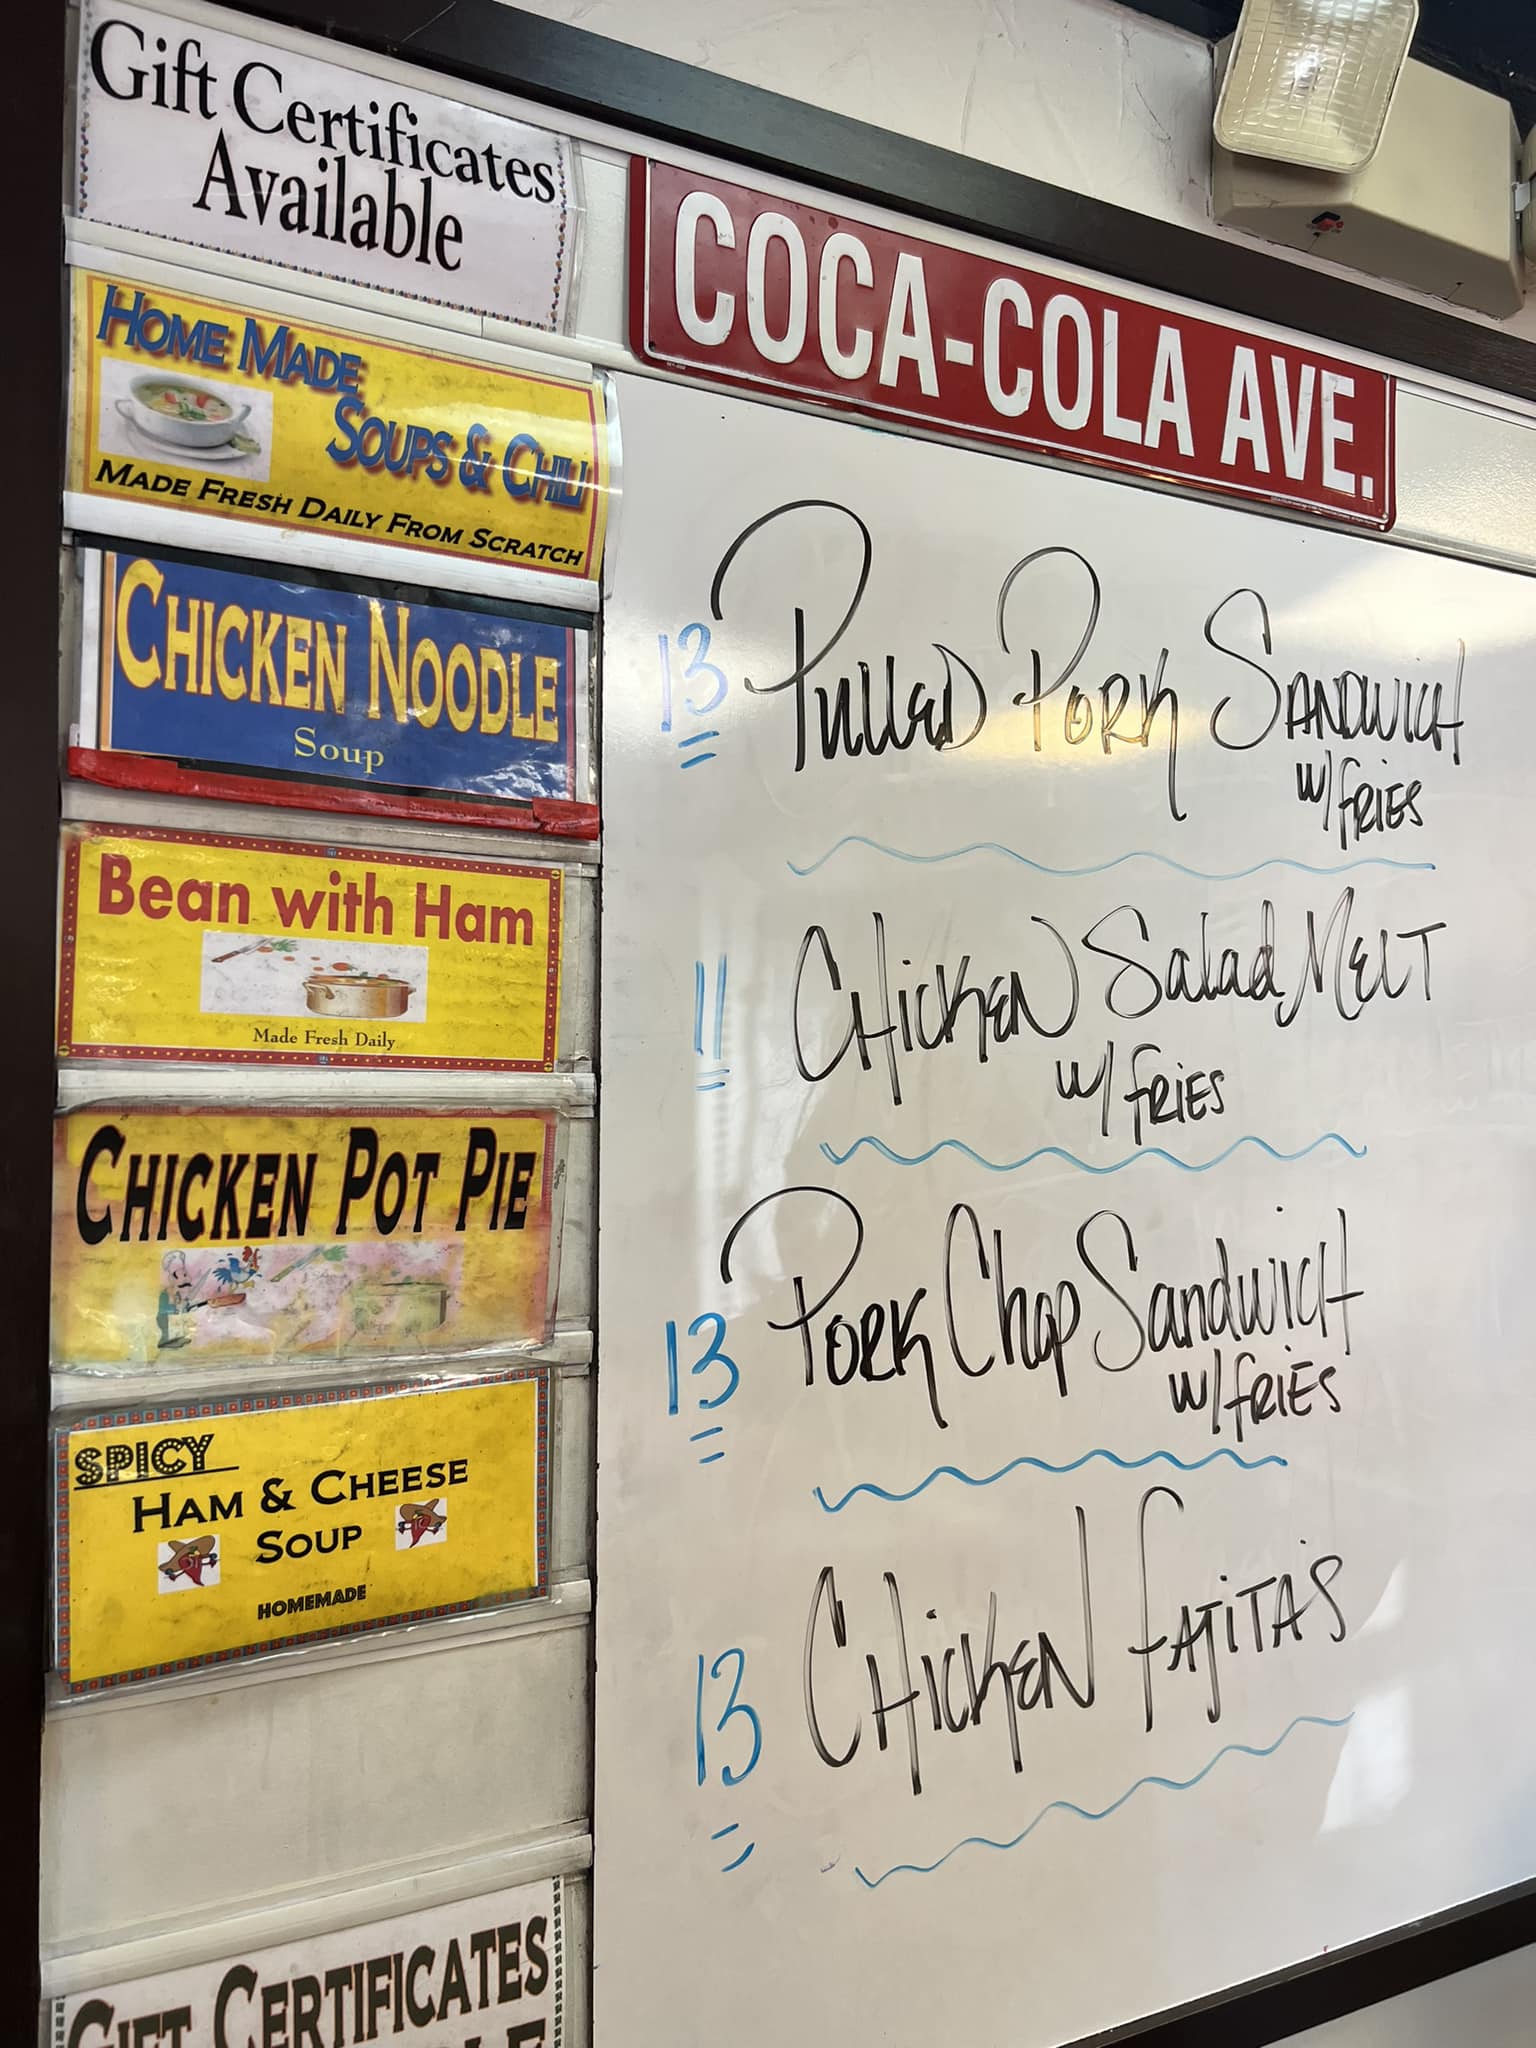 Gift Certificates
Available
HOME MADE
SOUPS & CHILI
MADE FRESH DAILY FROM SCRATCH
CHICKEN NOODLE
Soup
Bean with Ham
Made Fresh Daily
CHICKEN POT PIE
SPICY
HAM & CHEESE
SOUP
HOMEMADE
GIFT CERTIFICATES
COCA-COLA AVE.
13 PULLED PORK SANDWICH
W/ FRIES
11 CHICKEN Salad MELT
W/ FRIES
13 PORK Chop Sandwich
W/ FRIES
13 CHICKEN FAJITAS